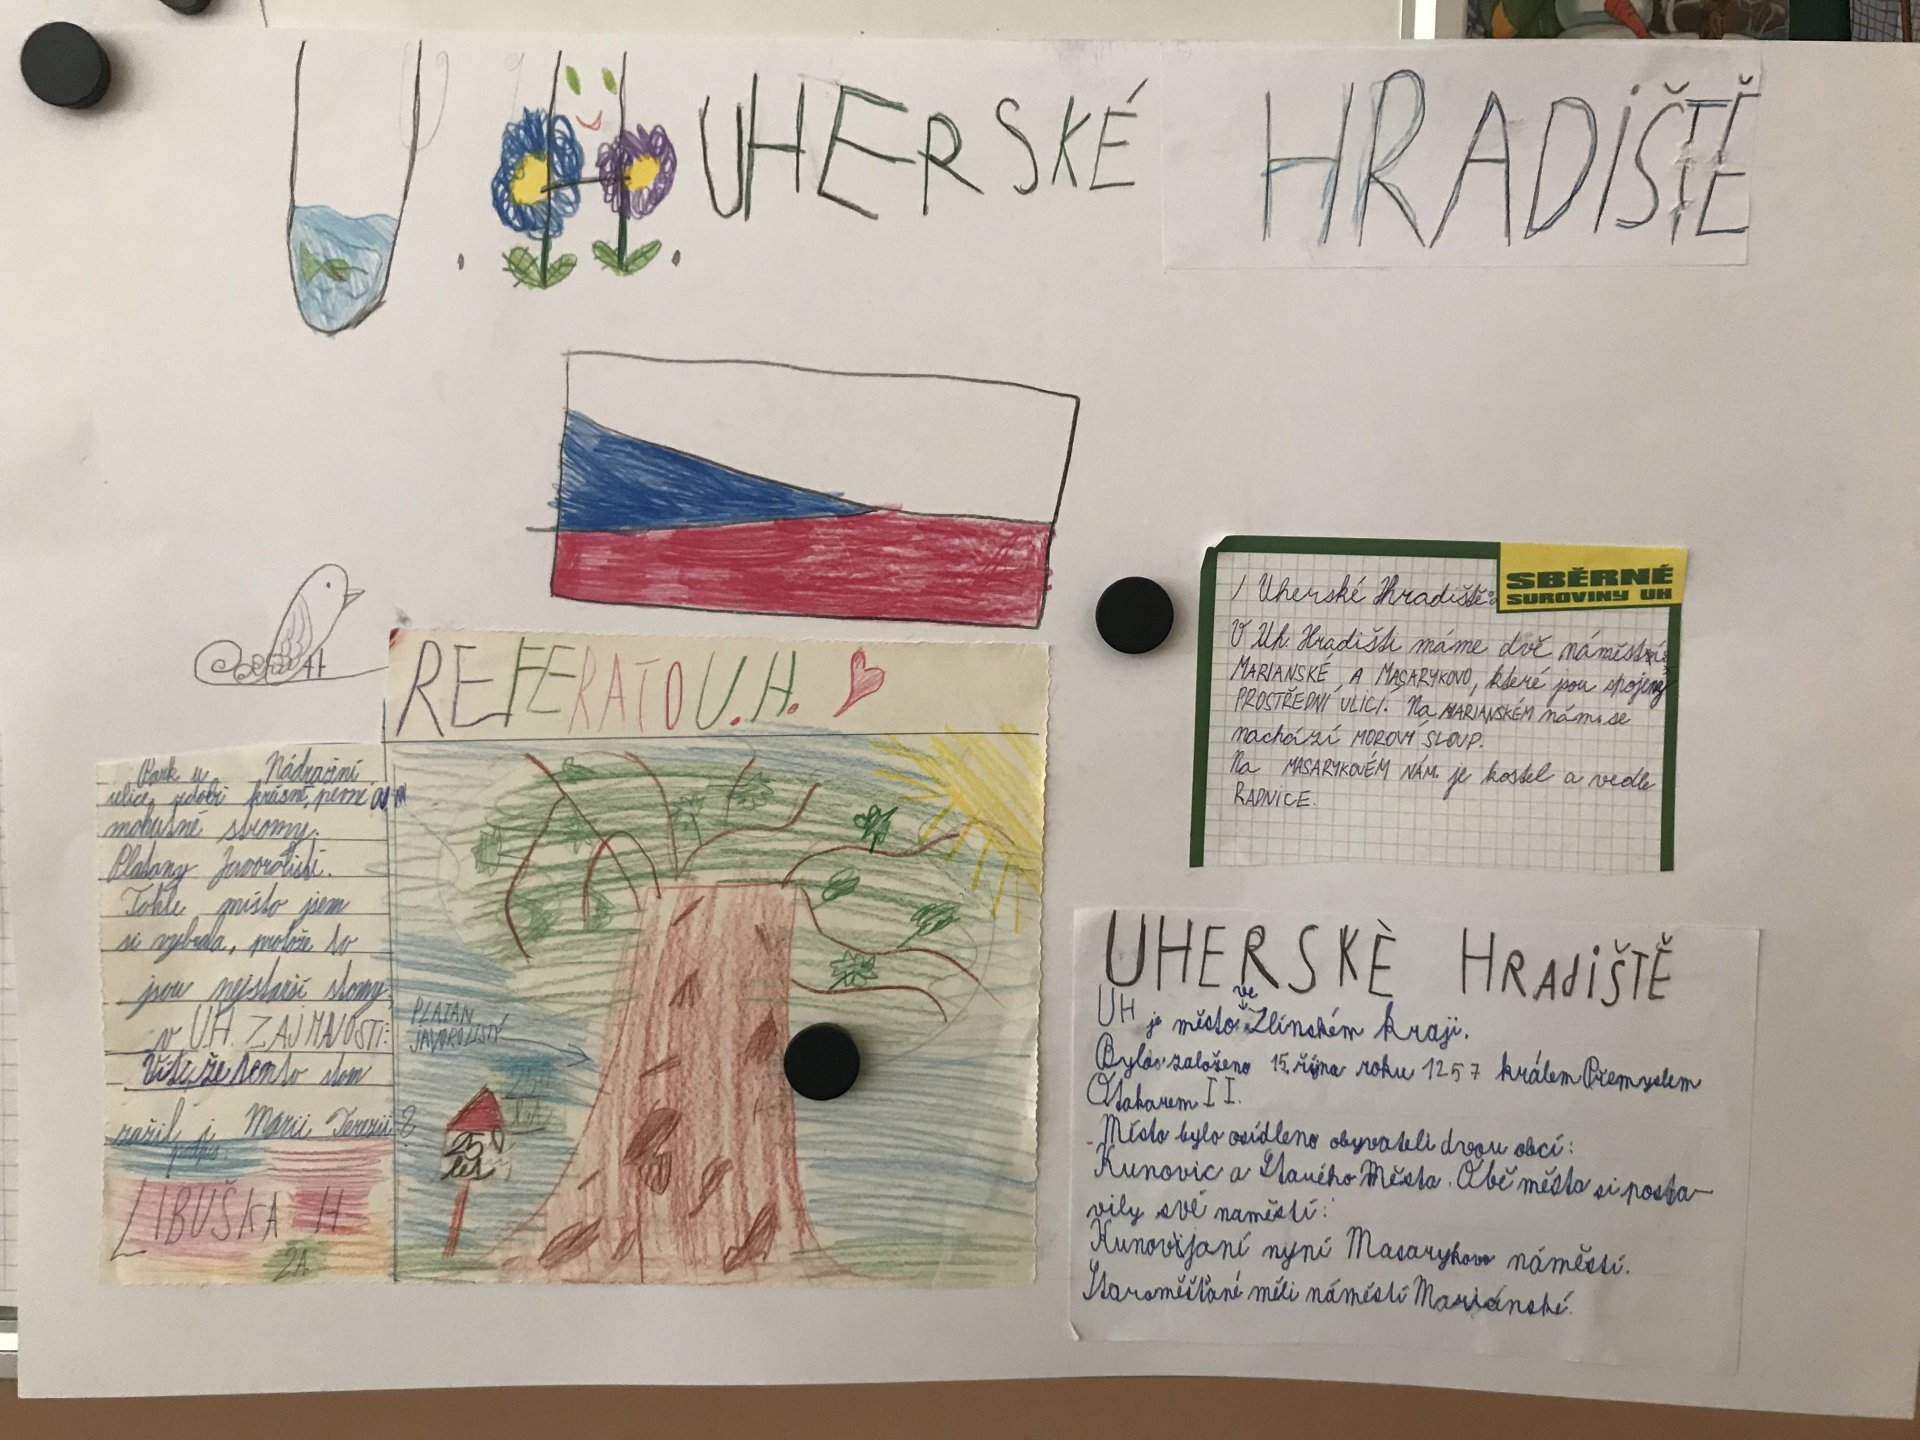 U. H. UHERSKÉ HRADIŠTĚ
SBĚRNÉ
SUROVINY UH
/ Uherské Hradiště:
V Uh. Hradišti máme dvě náměstí:
MARIANSKÉ A MASARYKOVO, které jsou spojeny
PROSTŘEDNÍ ULICÍ. Na MARIANSKÉM nám. se
nachází MOROVÝ SLOUP.
Na MASARYKOVÉM NÁM. je kostel a vedle
RADNICE.
REFERÁT O U.H.
Park u Nádražní
ulice zdobí krásné, pevné a
mohutné stromy.
Platany Javorolisté.
Tohle místo jsem
si vybrala, protože to
jsou nejstarší stromy
v UH. ZAJMAVOSTI:
Víte, že tento strom
zažil j Marii Terezii?
podpis:
LIBUŠKA H
2A
PLATAN
JAVOROLISTÝ
250
let
UHERSKÈ HRADIŠTĚ
UH je město ve Zlínském kraji.
Bylo založeno 15. října roku 1257 králem Přemyslem
Otakarem II.
Místo bylo osídleno obyvateli dvou obcí:
Kunovic a Starého Města. Obě města si posta-
vily své naměstí:
Kunovijaní nyní Masarykovo náměstí.
Staroměšťané měli náměstí Mariánské.